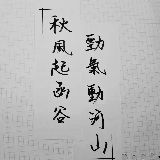 秋風起函谷
勁氣動河山